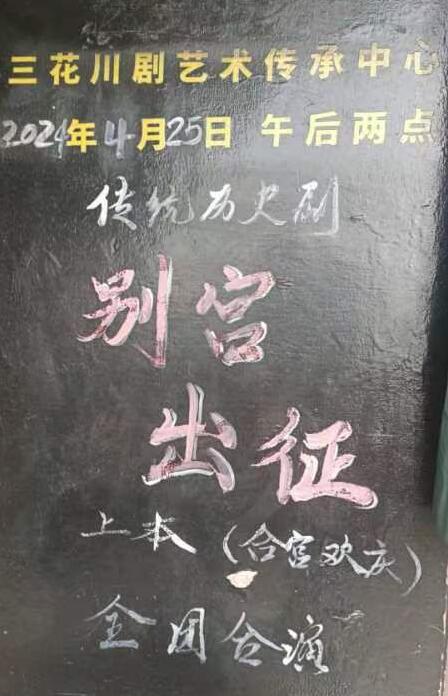 三花川剧艺术传承中心
2024年4月25日 午后两点
传统历史剧
别宫
出征
上本 (合宫欢庆)
全团合演